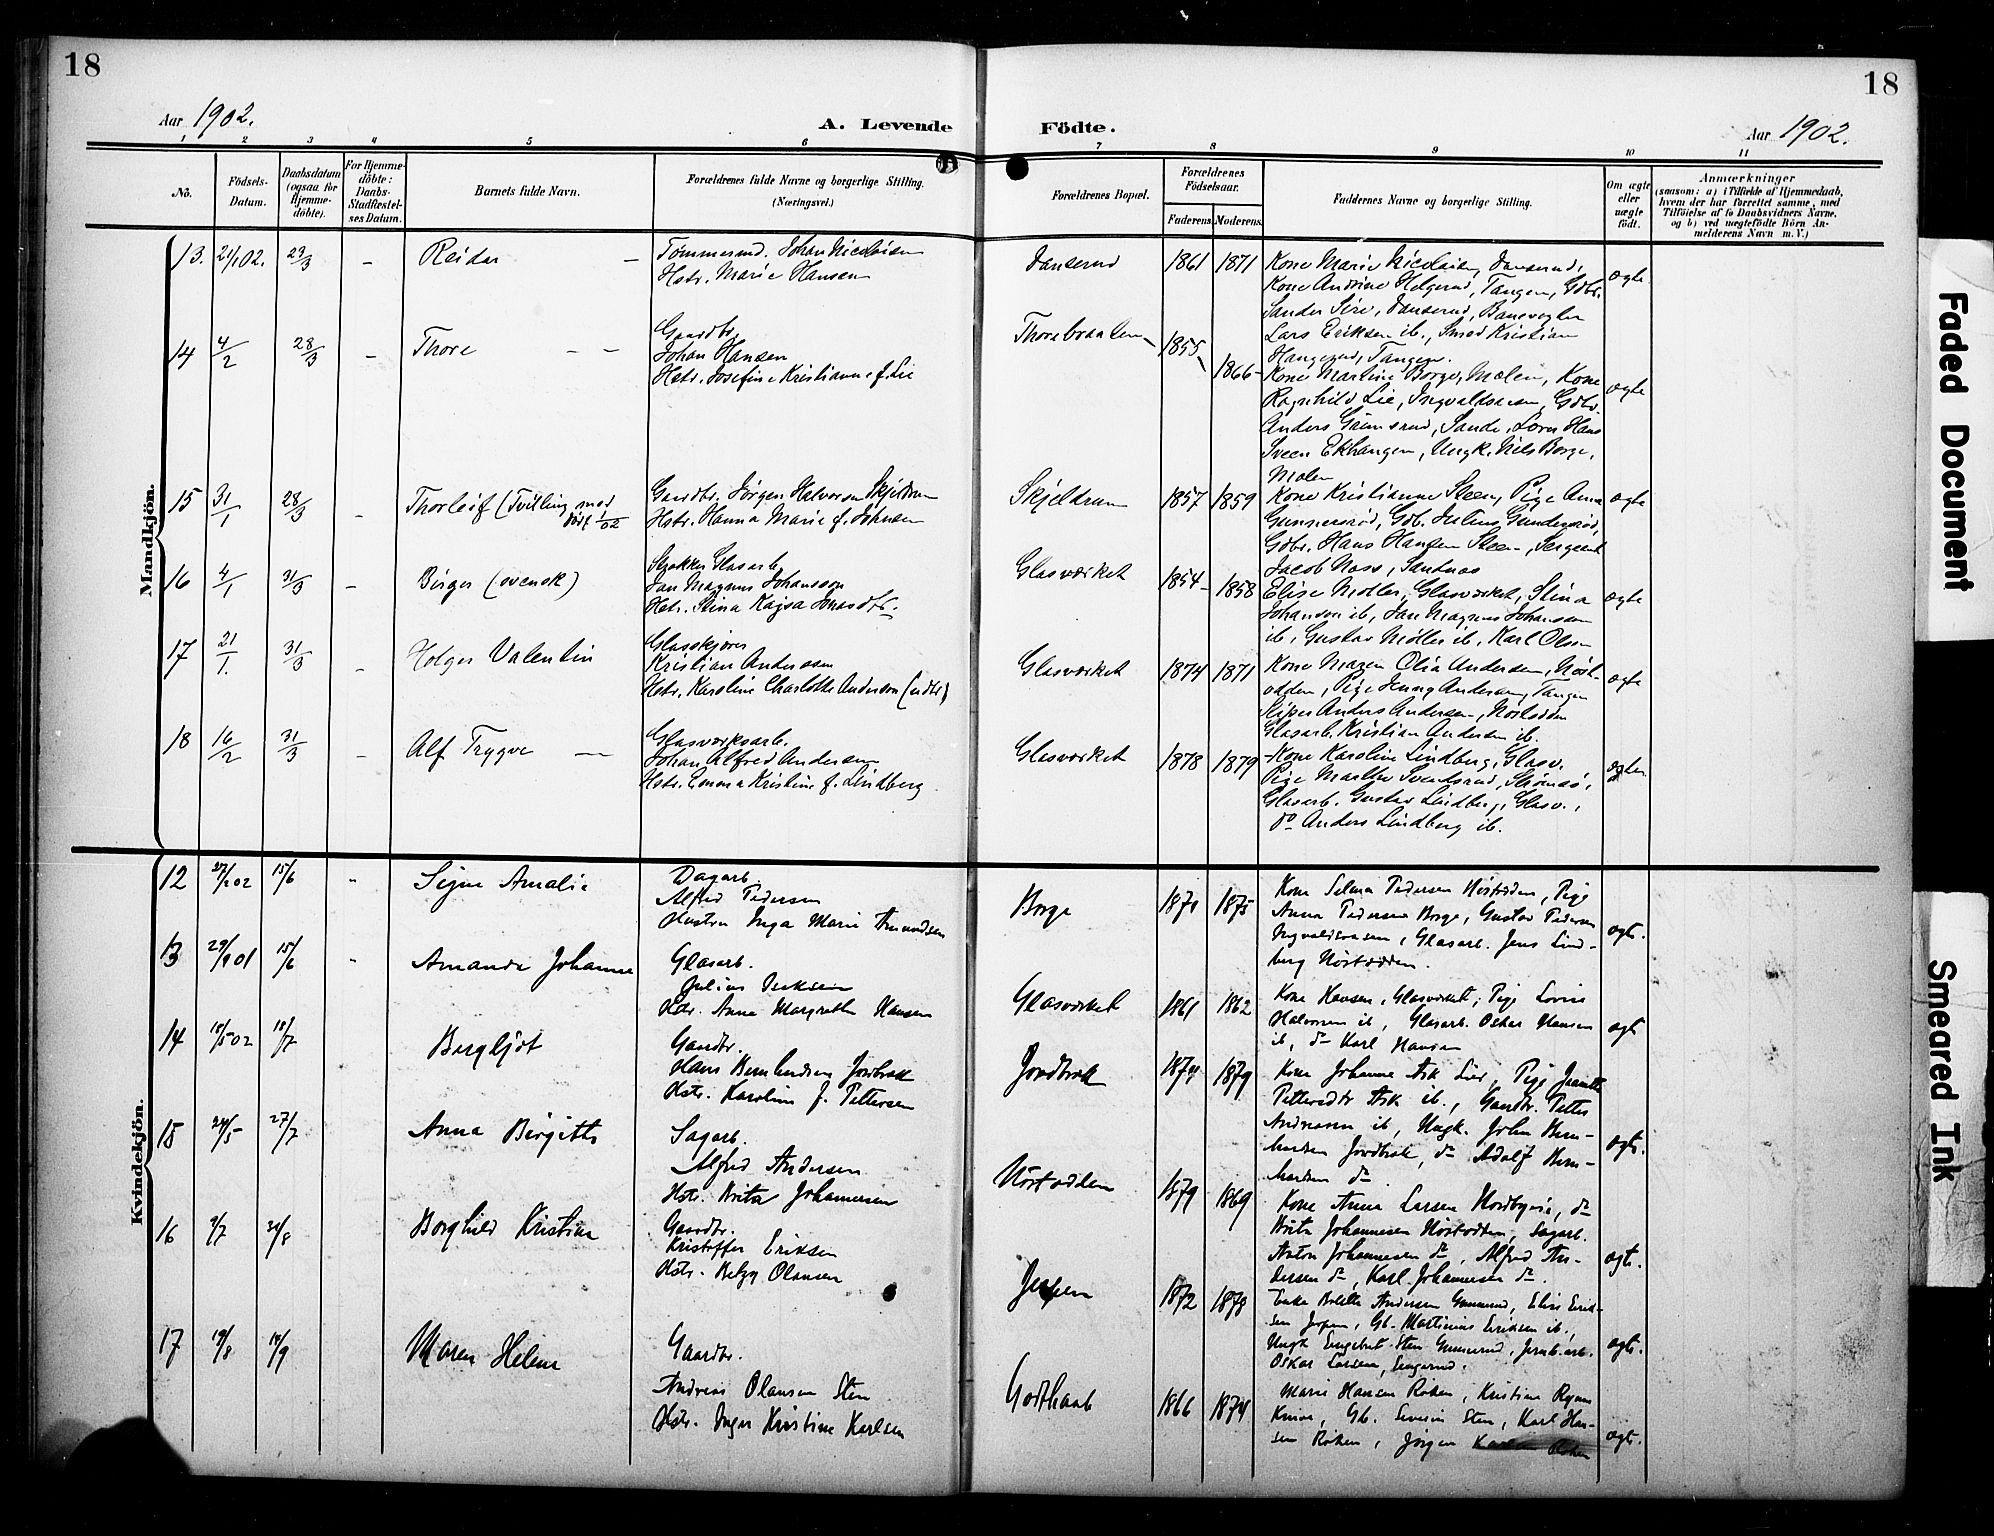 18
18
Aar 1902.
A. Levende Födte.
Aar 1902.
1 2 3 4 5 6 7 8 9 10 11
No.
Födsels-Datum.
Daabsdatum (ogsaa for Hjemme-döbte).
For Hjemme-döbte: Daabs-Stadfæstel-ses Datum.
Barnets fulde Navn.
Forældrenes fulde Navne og borgerlige Stilling.
(Næringsvei.)
Forældrenes Bopæl.
Forældrenes Födselsaar.
Faderens. Moderens.
Faddernes Navne og borgerlige Stilling.
Om ægte eller uægte födt.
Anmærkninger
(saasom: a) i Tilfælde af Hjemmedaab,
hvem der har forrettet samme, med
Tilföielse af to Daabsvidners Navne,
og b) ved uægtefödte Börn An-
melderens Navn m. V.)
Mandkjön.
13. 21/1 02. 23/3 – Reidar –
Tømmermd. Johan Nicolaisen
Hstr. Marie Hansen
Danserud 1861 1871
Kone Marie Nicolaisen, Danserud,
Kone Andrine Helgerud, Tangen, Gdbr.
Sander Sire, Danserud, Banevogter
Lars Eriksen ib., Smed Kristian
Haugerud, Tangen.
ægte
14 4/2 28/3 – Thore – –
Gaardbr.
Johan Hansen
Hstr. Josefine Kristianne f. Lie
Thornbraaten 1855 1866
Kone Martine Borge, Molen, Kone
Ragnhild Lie, Ingvaldsaasen, Gdbr.
Anders Grimsrud, Sande, Lærer Hans
Sveen Ekhaugen, Ungk. Nils Borge,
Molen
ægte
15 31/1 28/3 – Thorleif (Tvilling med
Gaardbr. Jørgen Halvorsen Skjeldrum
Hstr. Hanna Marie f. Johnsen
Skjeldrum 1857 1859
Kone Kristianne Steen, Pige Anna
Gunnersrød, Gdb. Julius Gundersrød,
Gdbr. Hans Hansen Steen, Sergeant
Jacob Moss, Sandnes
ægte
16 4/1 31/3 – Birger (svensk)
Glasarb.
Jan Magnus Johansson
Hstr. Stina Kajsa Jonasdtr.
Glasværket 1854 1858
Elise Møller, Glasværket, Stina
Johansson ib., Jan Magnus Johansson
ib., Gustav Møller ib., Karl Olsen
ægte
17 21/1. 31/3 – Holger Valentin
Glasskjærer
Kristian Andersen
Hstr. Karoline Charlotte Andersen
Glasværket 1874 1871
Kone Maren Olia Andersen, Nøst-
odden, Pige Jenny Andersen, Tangen
Sliper Anders Andersen, Nøstodden
Glasarb. Kristian Andersen ib.
ægte
18 16/2 31/3 – Alf Trygve –
Glasværksarb.
Johan Alfred Andersen
Hstr. Emma Kristine f. Lindberg
Glasværket 1878 1879
Kone Karoline Lindberg, Glasv.
Pige Marthe Svendsrud, Strømsø,
Glasarb. Gustav Lindberg, Glasv.,
do Anders Lindberg ib.
ægte
Kvindekjön.
12 15/6 " Signe Amalie
Dagarb.
Alfred Pedersen
Hustru Inga Marie Amundsen
Borge 1875
Kone Selma Pedersen Nøstodden, Pige
Anna Pedersen Borge, Gustav Pedersen
Ingvaldsaasen, Glasarb. Jens Lind-
berg Nøstodden.
ægte.
13 15/6 " Amanda Johanne
Glasarb.
Julius Eriksen
Hstr. Anna Margrethe Hansen
Glasværket 1861 1862
Kone Hansen, Glasværket, Pige Lovise
Halvorsen ib, Glasarb. Oskar Hansen
ib, do Karl Hansen
ægte
14 18/5 02 Bergljot
Gaardbr.
Hans Bernhardsen Jordbræk
Hstr. Karoline f. Pettersen
Jordbræk 1874 1879
Kone Johanne Ask Lier, Pige Jeanette
Pettersdtr Ask ib., Gaardbr. Petter
Andreasen ib, Ungk. John Bern-
hardsen Jordbræk, do Adolf Bern-
hardsen do.
ægte.
15 24/5 27/7 Anna Birgitte
Sagarb.
Alfred Andersen
Hstr. Brita Johannesen
Nøstodden 1879 1869
Kone Anna Larsen Nordbyeie, do
Brita Johannesen Nøstodden, Sagarb.
Anton Johannesen do, Alfred An-
dersen do, Karl Johannesen do.
ægte.
16 Borghild Kristine
Gaardbr.
Kristoffer Eriksen
Hstr. Betzy Olausen
Jerpen 1872 1878
Enke Bolette Andersen Gunnerud, Elise Erik-
sen Jerpen, Gb. Martinius Eriksen ib.,
Ungk Engebret Sten Gunnerud, Jernb.arb.
Oskar Larsen, Engerud.
ægte.
17 19/8 14/9 Maren Helene
Gaardbr.
Andreas Olausen Sten
Hstr. Inger Kristine Karlsen
Godthaab 1866 1874
Marie Hansen Røken, Kristine
Gb. Severin Sten, Karl Han-
sen Røken, Jørgen
ægte.
Faded Document
Smeared Ink